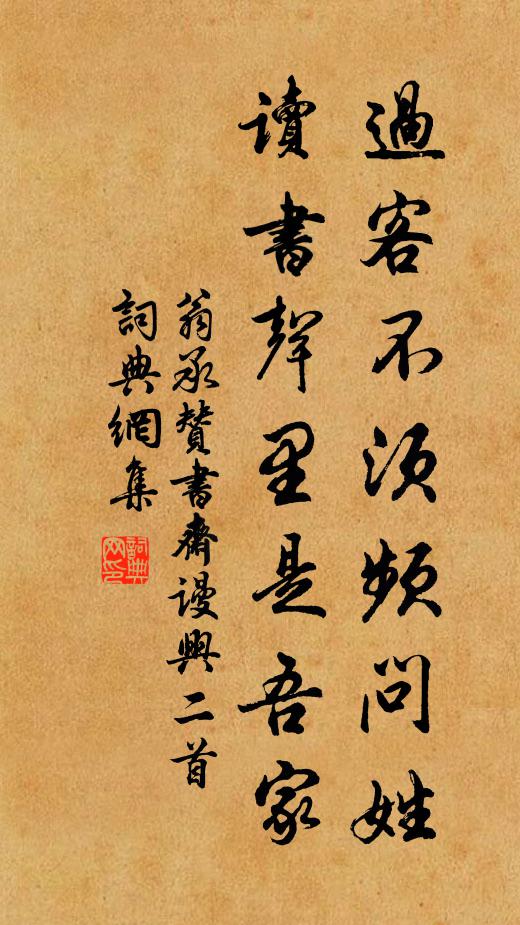 過客不須頻問姓
讀書聲里是吾家
翁承贊書齋謾興二首
詞典網集
詞典
网印